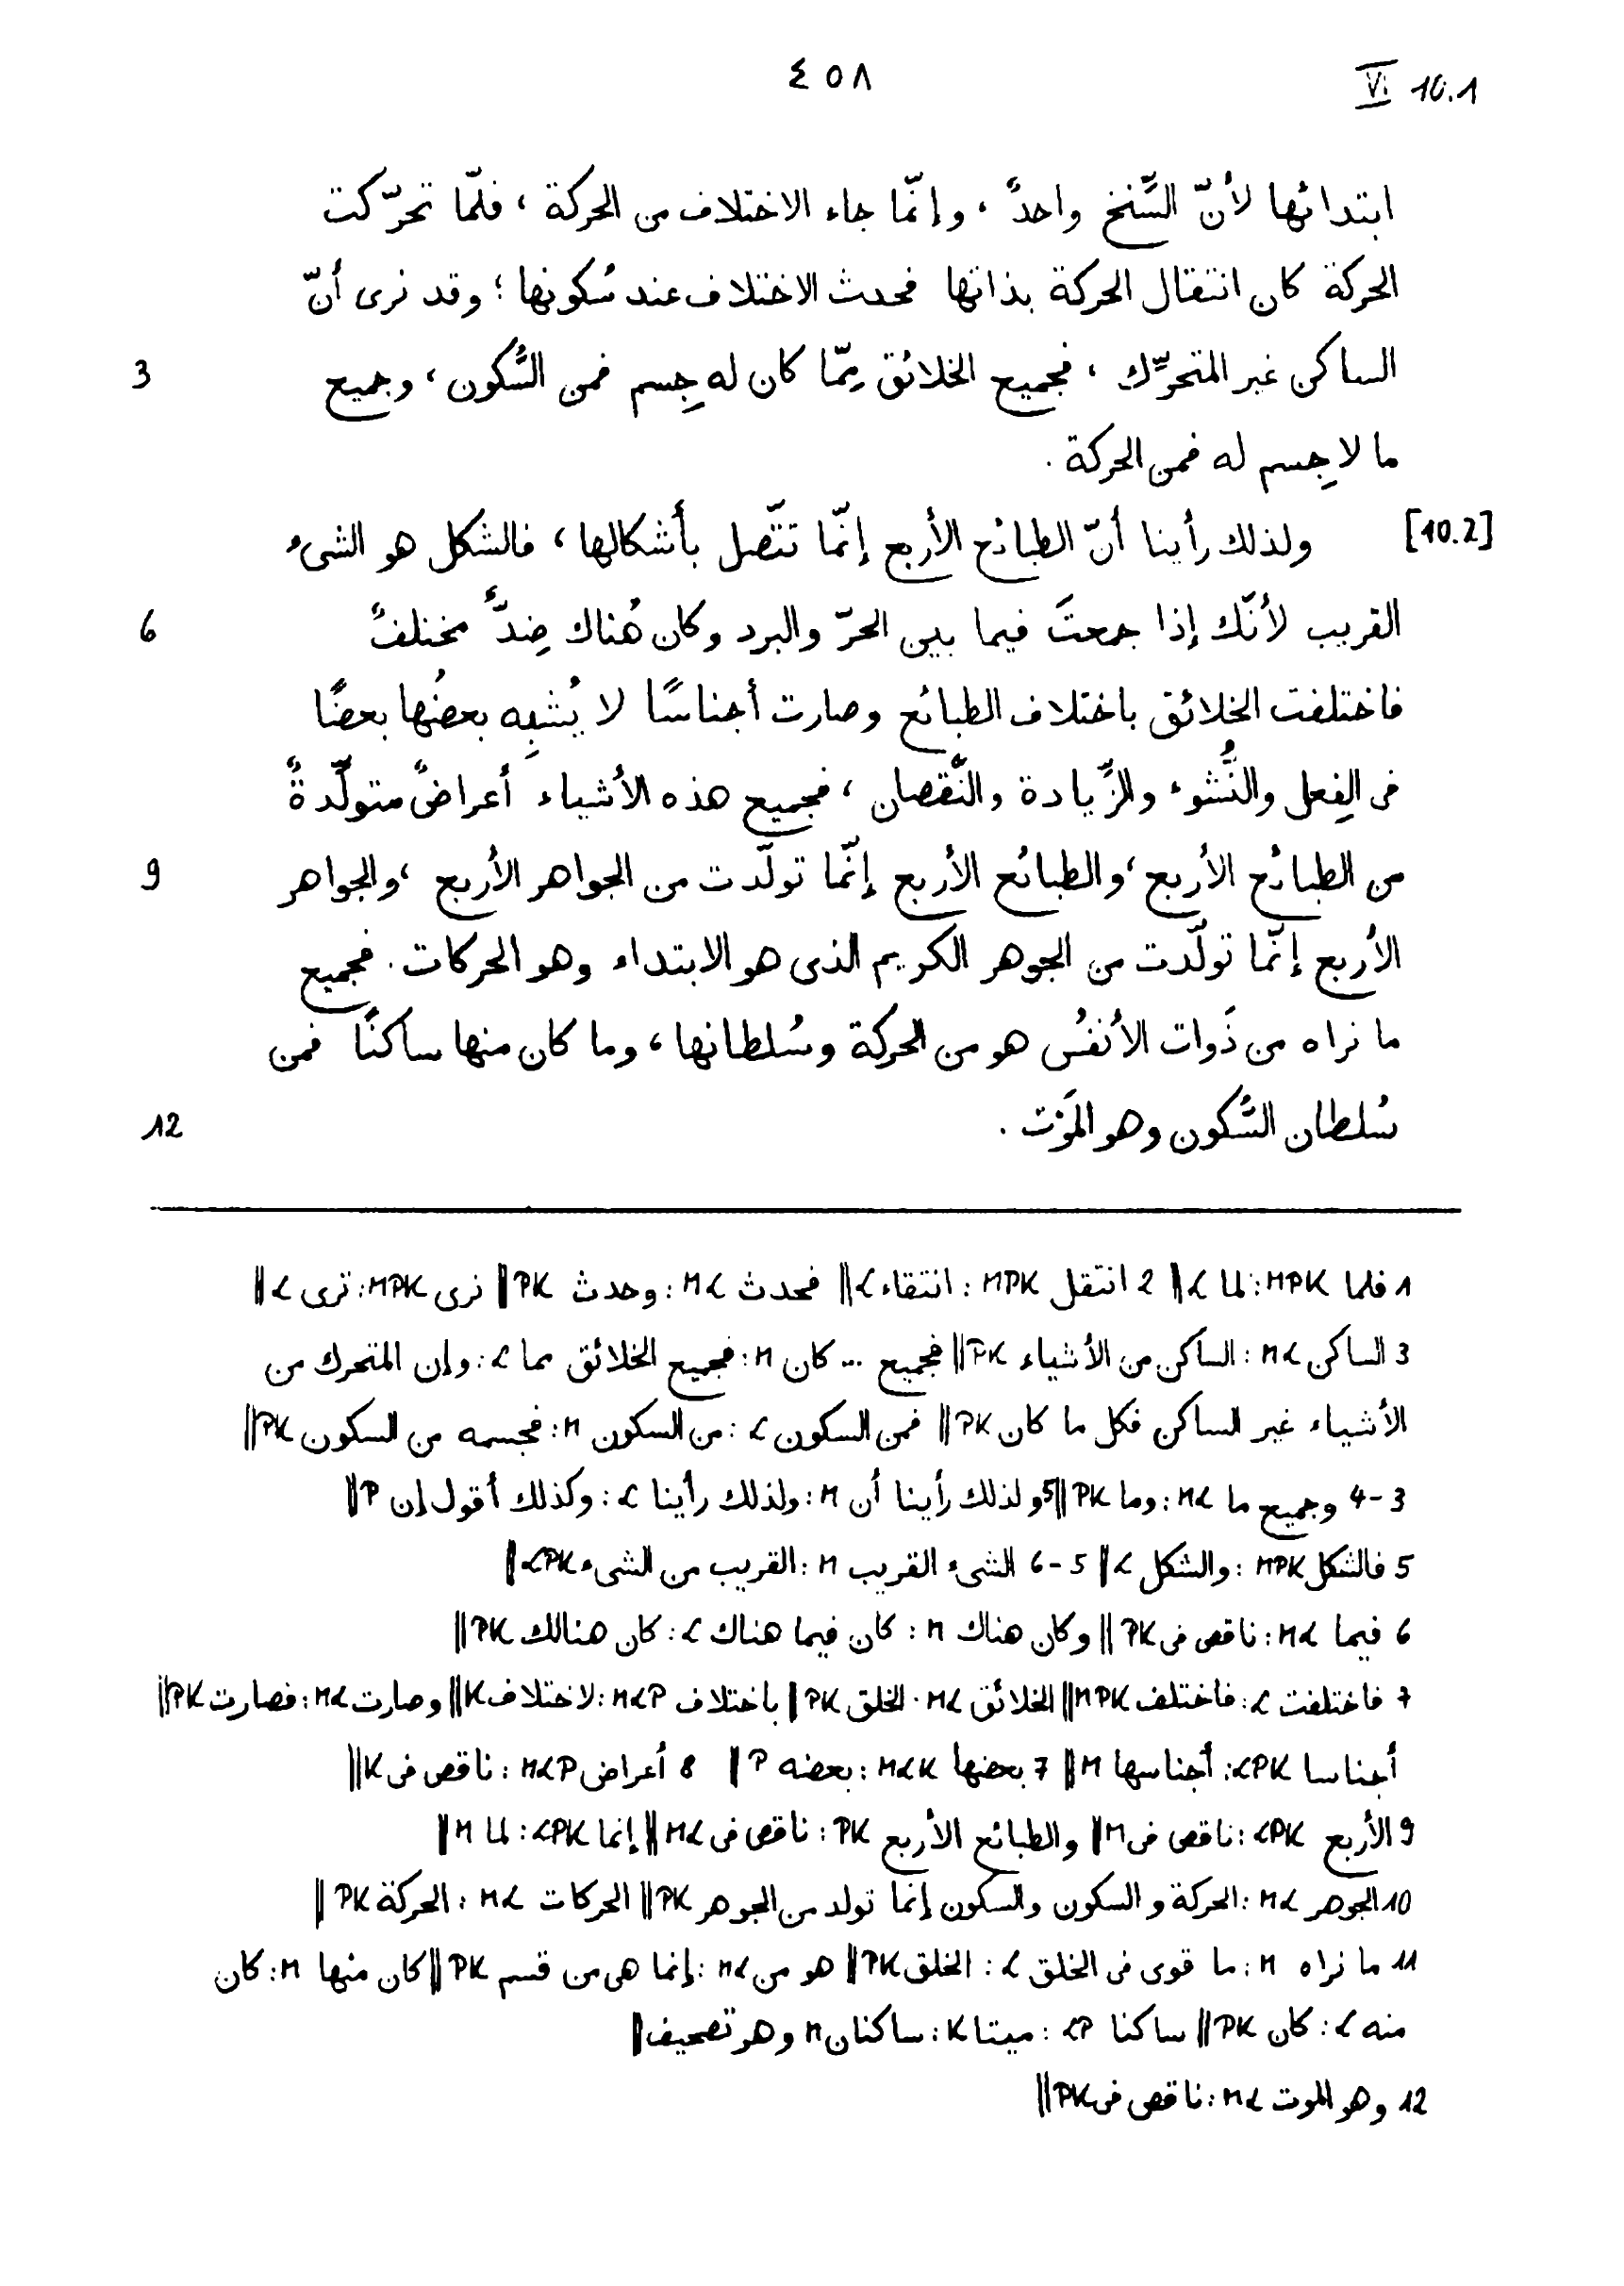 ٤٥٨
VI 10.1
ابتدائها لأنّ السِّنخ واحدٌ، وإنّما جاء الاختلاف من الحركة، فلمّا تحرّكت
الحركة كان انتقال الحركة بذاتها فحدث الاختلاف عند سُكونها؛ وقد نرى أنّ
الساكن غير المتحرِّك، فجميع الخلائق مِمّا كان له جِسم فمن السُّكون، وجميع 3
ما لا جِسم له فمن الحركة.
[10.2] ولذلك رأينا أنّ الطبائع الأربع إنّما تتّصل بأشكالها، فالشكل هو الشىء
القريب لأنّك إذا جمعتَ فيما بين الحرّ والبرد وكان هُناك ضِدٌّ مختلفٌ 6
فاختلفت الخلائق باختلاف الطبائع وصارت أجناسًا لا يُشبِه بعضُها بعضًا
فى الفِعل والنُّشوء والزِّيادة والنُّقصان، فجميع هذه الأشياء أعراضٌ متولِّدةٌ
من الطبائع الأربع، والطبائع الأربع إنّما تولّدت من الجواهر الأربع، والجواهر 9
الأربع إنّما تولّدت من الجوهر الكريم الذى هو الابتداء وهو الحركات. فجميع
ما نراه من ذَوات الأنفُس هو من الحركة وسُلطانها، وما كان منها ساكنًا فمن
سُلطان السُّكون وهو المَوْت. 12
1 فلما MPK: لما L‖ 2 انتقل MPK: انتقاء L‖ فحدث ML: وحدث PK‖ نرى MPK: ترى L‖
3 الساكن ML: الساكن من الأشياء PK‖ فجميع ... كان M: فجميع الخلائق مما L: وإن المتحرك من
الأشياء غير الساكن فكل ما كان PK‖ فمن السكون L: من السكون M: فجسمه من السكون PK‖
3-4 وجميع ما ML: وما PK‖ 5 ولذلك رأينا أن M: ولذلك رأينا L: وكذلك أقول إن P‖
5 فالشكل MPK: والشكل L‖ 5-6 الشىء القريب M: القريب من الشىء LPK‖
6 فيما ML: ناقص فى PK‖ وكان هناك M: كان فيما هناك L: كان هنالك PK‖
7 فاختلفت L: فاختلف MPK‖ الخلائق ML: الخلق PK‖ باختلاف MLP: لاختلاف K‖ وصارت ML: فصارت PK‖
أجناسا LPK: أجناسها M‖ 7 بعضها MLK: بعضه P‖ 8 أعراض MLP: ناقص فى K‖
9 الأربع LPK: ناقص فى M‖ والطبائع الأربع PK: ناقص فى ML‖ إنما LPK: لما M‖
10 الجوهر ML: الحركة والسكون والسكون إنما تولد من الجوهر PK‖ الحركات ML: الحركة PK‖
11 ما نراه M: ما قوى فى الخلق L: الخلق PK‖ هو من ML: إنما هى من قسم PK‖ كان منها M: كان
منه L: كان PK‖ ساكنا LP: ميتا K: ساكنان M وهو تصحيف‖
12 وهو الموت ML: ناقص فى PK‖